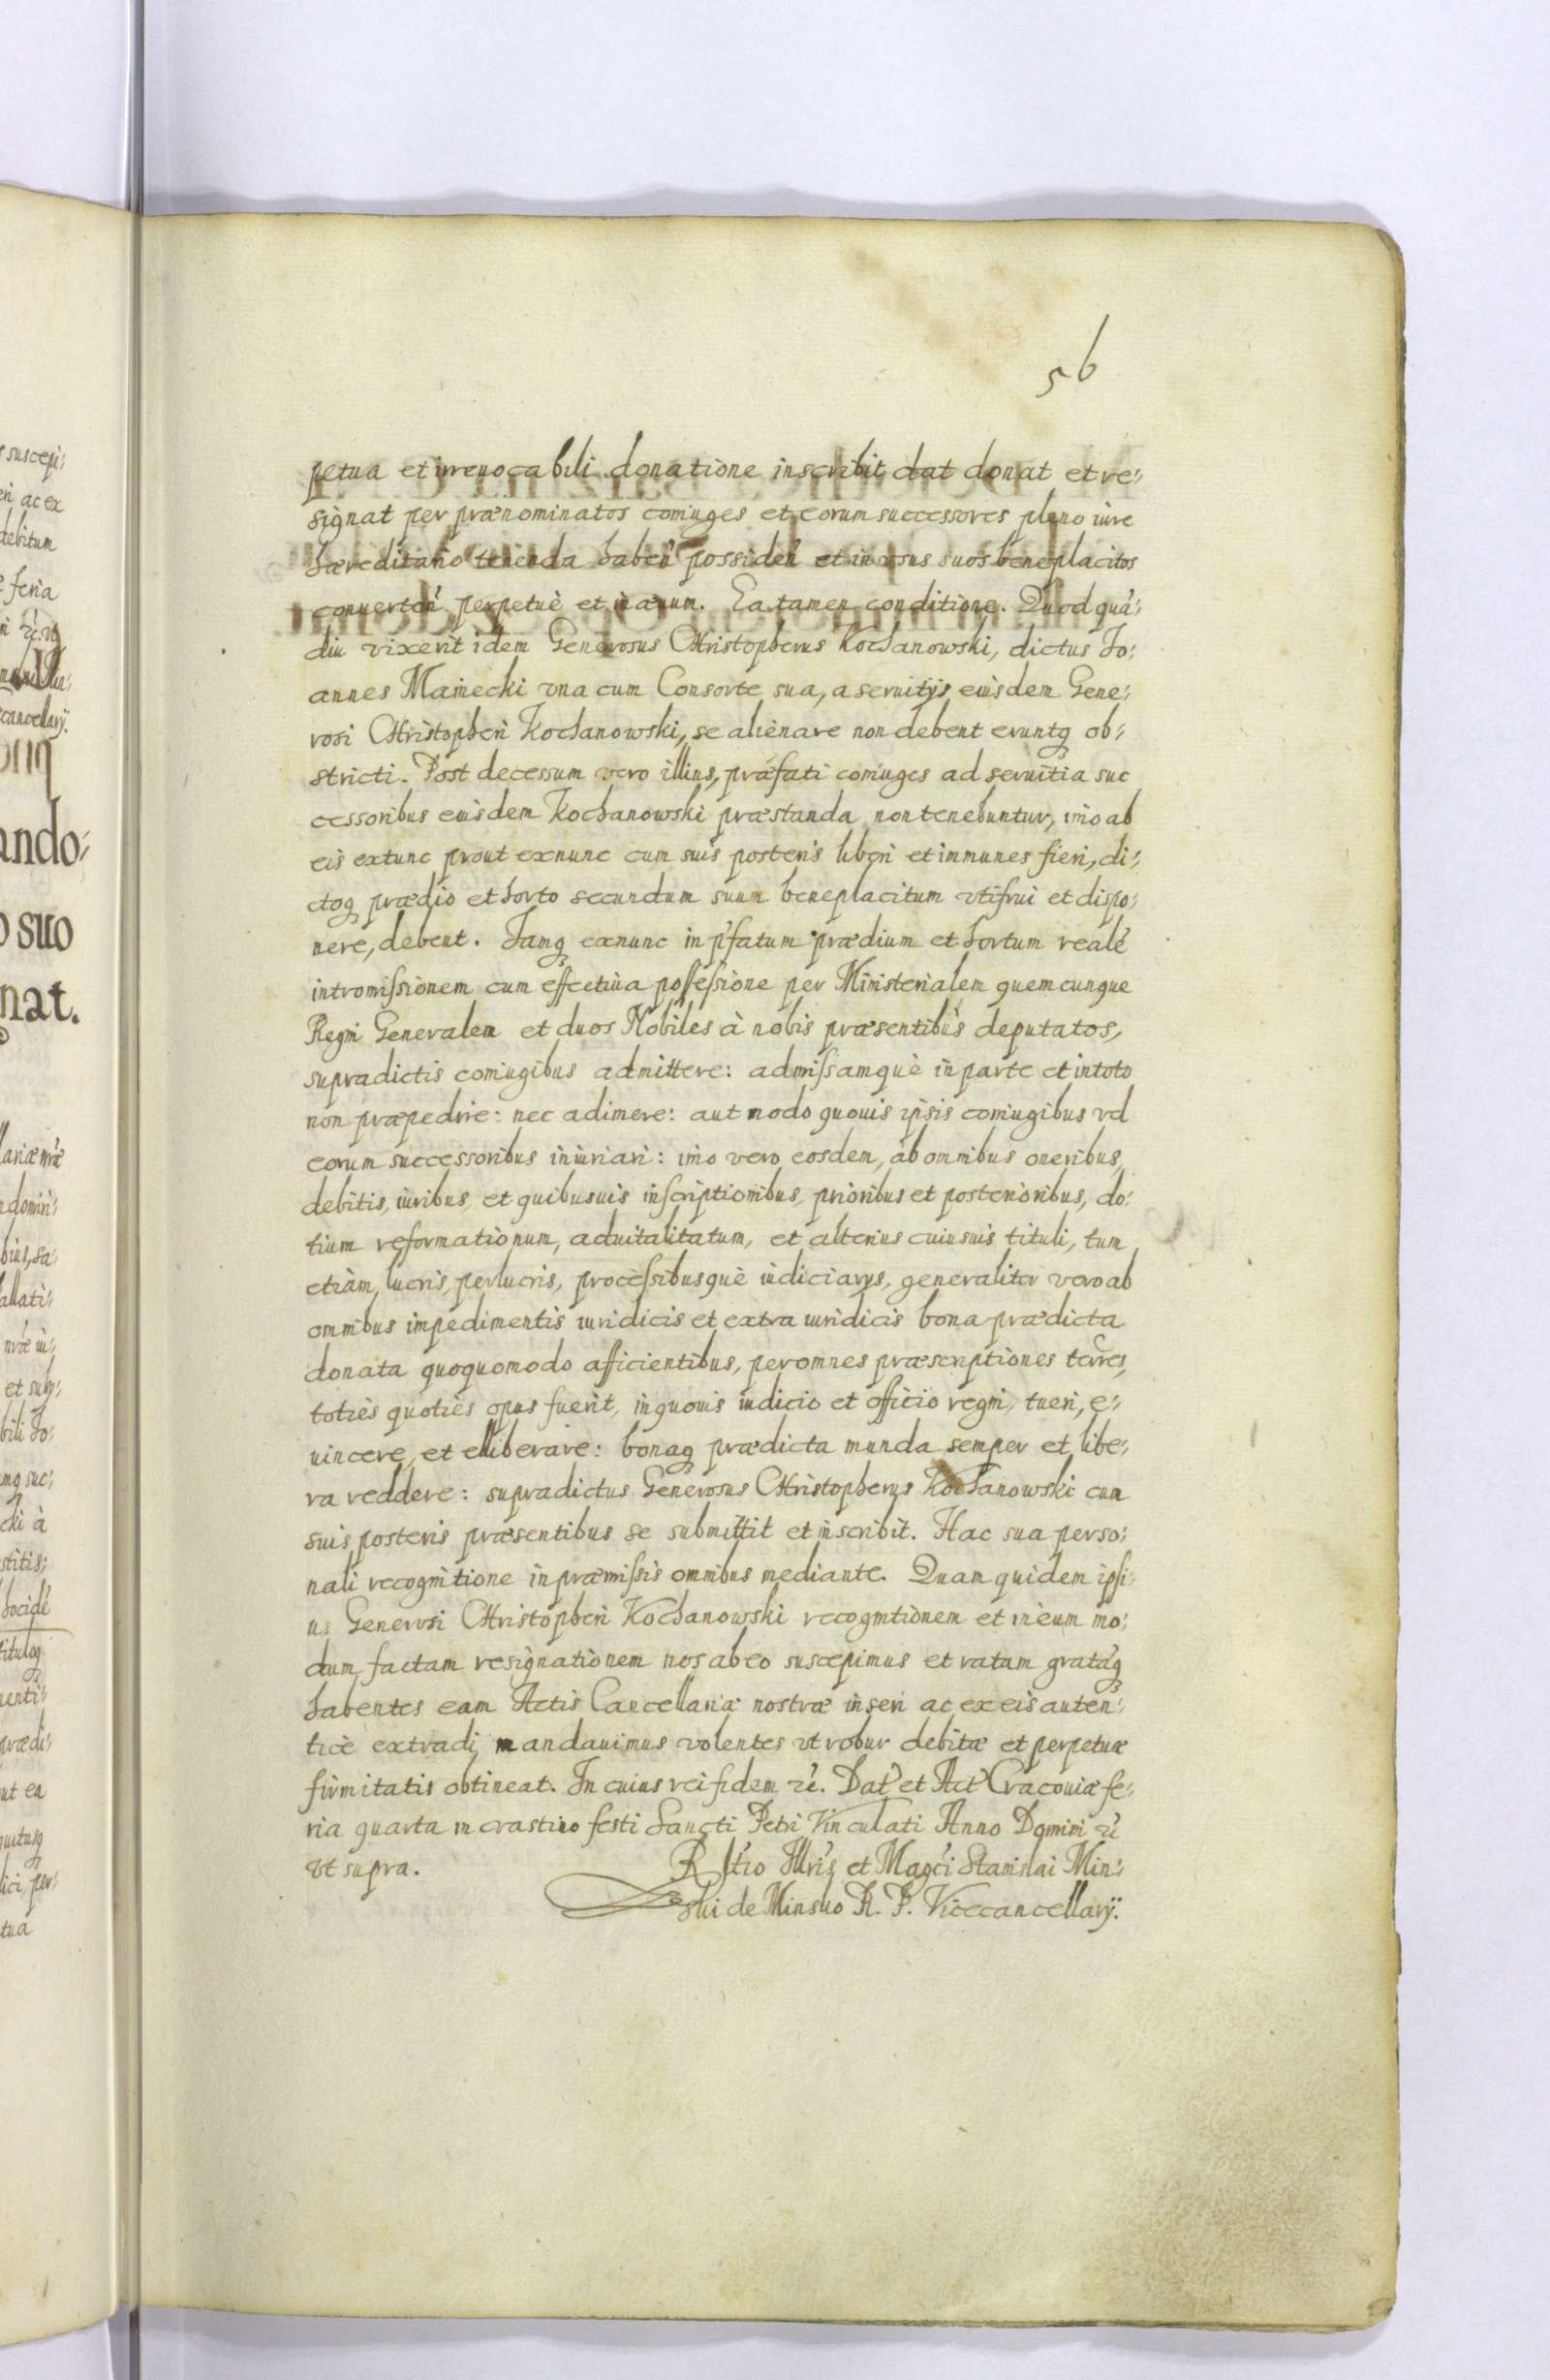 56
petua et irreuocabili donatione inscribit dat donat et re:
signat per prænominatos coniuges et eorum successores pleno iure
hæreditario tenenda haben̓ possiden̓ et in vsus suos beneplacitos
conuerten̓ perpetuè et in æuum. Ea tamen conditione. Quod quā:
diu vixerit idem Generosus Christopherus Kochanowski, dictus Io:
annes Mainecki vna cum Consorte sua, a seruitijs eiusdem Gene:
rosi Christopheri Kochanowski, se alienare non debent eruntq ob:
stricti. Post decessum vero illius, præfati coniuges ad seruitia suc
cessoribus eiusdem Kochanowski præstanda non tenebuntur, imo ab
eis extunc prout exnunc cum suis posteris liberi et immunes fieri, di:
ctoq prædio et horto secundum suum beneplacitum vtifrui et dispo:
nere, debent. Iamq exnunc in p̓fatum prædium et hortum realē
intromissionem cum effectiua possessione per Ministerialem quemcunque
Regni Generalem et duos Nobiles à nobis præsentibus deputatos,
supradictis coniugibus admittere: admissamquè in parte et in toto
non præpedire: nec adimere: aut modo quouis ipsis coniugibus vel
eorum successoribus iniuriari: imo vero eosdem, ab omnibus oneribus,
debitis, iuribus, et quibusuis inscriptionibus, prioribus et posterioribus, do:
tium reformationum, aduitalitatum, et alterius cuiusuis tituli, tum
etiàm, lucris, perlucris, processibusquè iudiciarys, generaliter vero ab
omnibus impedimentis iuridicis et extra iuridicis bona prædicta
donata quoquomodo afficientibus, per omnes præscriptiones terres,
totiès quotiès opus fuerit, in quouis iudicio et officio regni, tueri, e:
uincere, et elliberare: bonaq prædicta munda semper et libe:
ra reddere: supradictus Generosus Christopherus Kochanowski cum
suis posteris præsentibus se submittit et inscribit. Hac sua perso:
nali recognitione in præmissis omnibus mediante. Quam quidem ipsi:
us Generosi Christopheri Kochanowski recognitionem et in eum mo:
dum factam resignationem nos ab eo suscepimus et ratam gratāq
habentes eam Actis Cancellariæ nostræ inseri ac ex eis auten:
ticè extradi mandauimus volentes vt robur debitæ et perpetuæ
firmitatis obtineat. In cuius rei fidem rc̓. Dat̓ et Act̓ Cracouiæ fe:
ria quarta in crastino festi Sancti Petri Vinculati Anno Domini rc̓
vt supra.
R ltio Illris et Magci Stanislai Min:
ski de Minsko R. P. Vicecancellarÿ.